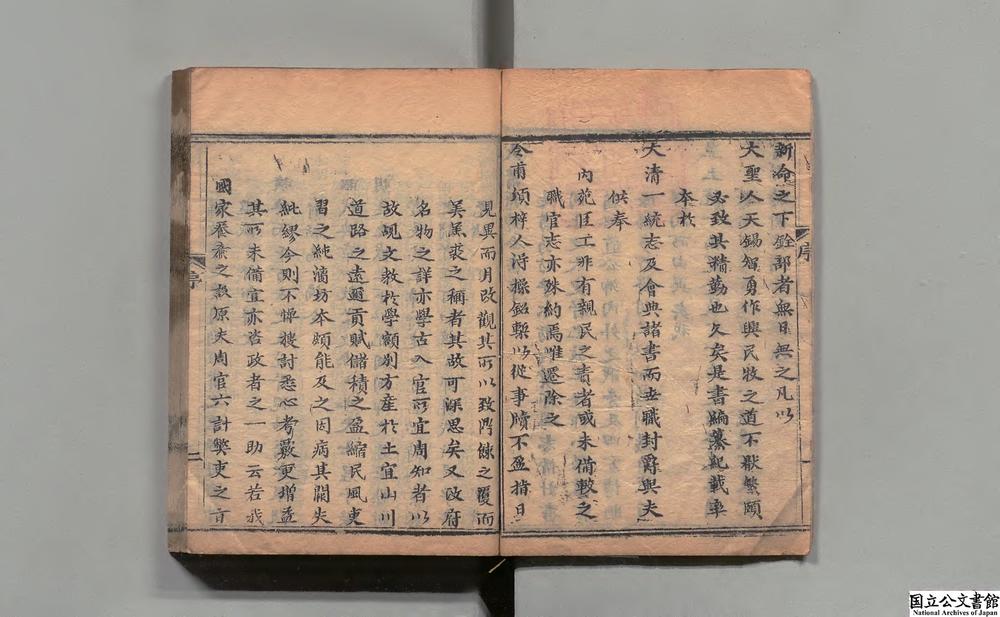 新命之下銓部者無日無之凡以
大聖以天錫智勇作興民牧之道不厭繁頤
必致其精勤也久矣是書編纂紀載率
奉於
大清一統志及會典諸書而去職封爵與夫
供奉
內苑匠工非有親民之責者或未備載之
職官志亦殊約焉惟遷除之
令甫頒梓人浔操鉛槧以從事牘不盈指日
序
見異而月改觀其所以致門餗之覆而
美羔裘之稱者其故可深思矣又政府
名物之詳亦學古入官所宜周知者以
故覘文教於學額別方產於土宜山川
道路之遠邇貢賦儲積之盈縮民風吏
習之純漓坊本頗能及之因病其闕失
紕繆今則不憚搜討悉心考覈更增益
其所未備宜亦咨政者之一助云若我
國家養廉之
原夫周官六計獘吏之言
序
二
国立公文書館
National Archives of Japan